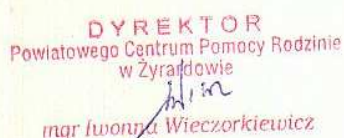 DYREKTOR
Powiatowego Centrum Pomocy Rodzinie
w Żyrardowie
mgr Iwonna Wieczorkiewicz